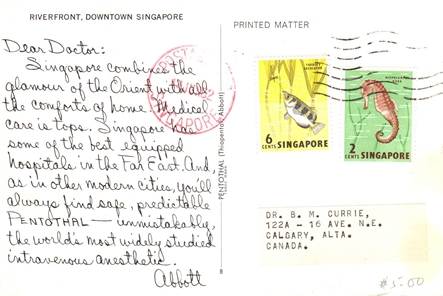 RIVERFRONT, DOWNTOWN SINGAPORE
Dear Doctor:
Singapore combines the
glamour of the Orient with all
the comforts of home. Medical
care is tops. Singapore has
some of the best equipped
hospitals in the Far East. And,
as in other modern cities, you'll
always find safe, predictable
PENTOTHAL — unmistakably,
the world's most widely studied
intravenous anesthetic.
Abbott
PENTOTHAL (Thiopental, Abbott)
TRADE MARK
8
PRINTED MATTER
SINGAPORE
6 CENTS SINGAPORE
2 CENTS SINGAPORE
DR. B. M. CURRIE,
122A - 16 AVE. N.E.
CALGARY, ALTA.
CANADA.
#5-00